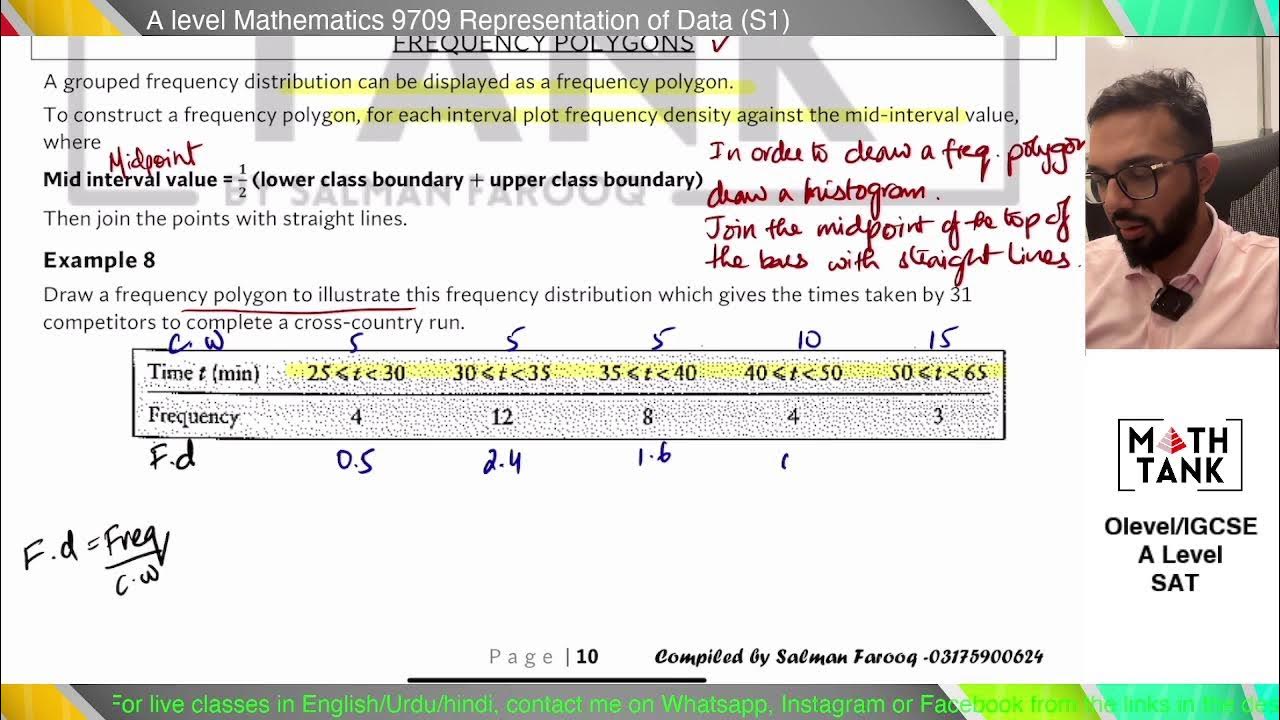 A level Mathematics 9709 Representation of Data (S1)
FREQUENCY POLYGONS ✓
A grouped frequency distribution can be displayed as a frequency polygon.
To construct a frequency polygon, for each interval plot frequency density against the mid-interval value,
where
Midpoint
Mid interval value = 1/2 (lower class boundary + upper class boundary)
Then join the points with straight lines.
In order to draw a freq. polygon
draw a histogram.
Join the midpoint of the top of
the bars with straight lines.
TANK
BY SALMAN FAROOQ
Example 8
Draw a frequency polygon to illustrate this frequency distribution which gives the times taken by 31
competitors to complete a cross-country run.
C.W 5 5 5 10 15
Time t (min) 25⩽t<30 30⩽t<35 35⩽t<40 40⩽t<50 50⩽t<65
Frequency 4 12 8 4 3
F.d 0.5 2.4 1.6
F.d = Freq/C.W
Page | 10
Compiled by Salman Farooq -03175900624
MATH
TANK
Olevel/IGCSE
A Level
SAT
For live classes in English/Urdu/hindi, contact me on Whatsapp, Instagram or Facebook from the links in the des